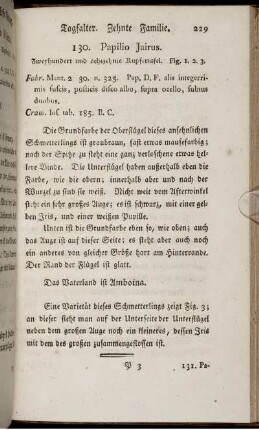 Tagfalter. Zehnte Familie. 229
130. Papilio Jairus.
Zweyhundert und achtzehnte Kupfertafel. Fig. 1. 2. 3.
Fabr. Mant. 2. 30. n. 325. Pap. D. F. alis integerri-
mis fuscis, posticis disco albo, supra ocello, subtus
duobus.
Cram. Ins. tab. 185. B. C.
Die Grundfarbe der Oberflügel dieses ansehnlichen
Schmetterlings ist graubraun, fast etwas mausefarbig;
nach der Spitze zu steht eine ganz verloschene etwas hel-
lere Binde. Die Unterflügel haben außerhalb eben die
Farbe, wie die oben; innerhalb aber und nach der
Wurzel zu sind sie weiß. Nicht weit vom Afterwinkel
steht ein sehr großes Auge; es ist schwarz, mit einer gel-
ben Iris, und einer weißen Pupille.
Unten ist die Grundfarbe eben so, wie oben; auch
das Auge ist auf dieser Seite; es steht aber auch noch
ein anderes von gleicher Größe hart am Hinterrande.
Der Rand der Flügel ist glatt.
Das Vaterland ist Amboina.
Eine Varietät dieses Schmetterlings zeigt Fig. 3;
an dieser sieht man auf der Unterseite der Unterflügel
neben dem großen Auge noch ein kleineres, dessen Iris
mit dem des großen zusammengeflossen ist.
P 3 131. Pa-